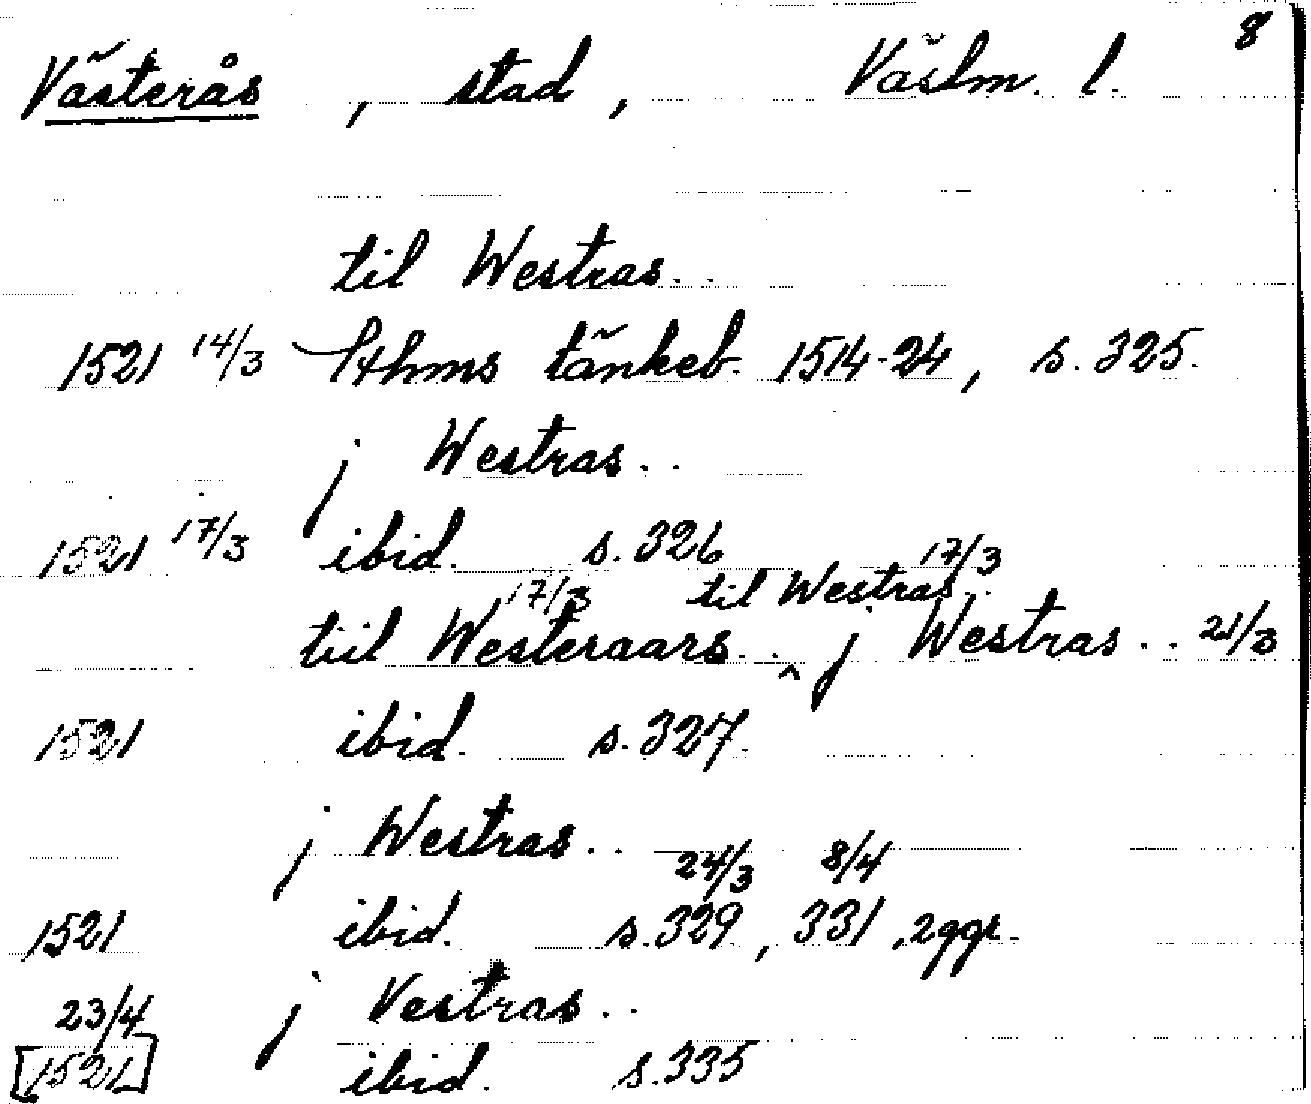 8
Västerås, stad, Västm. l.
til Westras..
1521 14/3 Sthms tänkeb. 1514-24, s. 325.
j Westras..
1521 17/3 ibid. s. 326
17/3 til Westras.. 17/3
tiil Westeraars.. ^ j Westras.. 21/3
1521 ibid. s. 327.
j Westras..
24/3 8/4
1521 ibid. s. 329, 331, 2ggr.
23/4 j Vestras..
[1521] ibid. s. 335